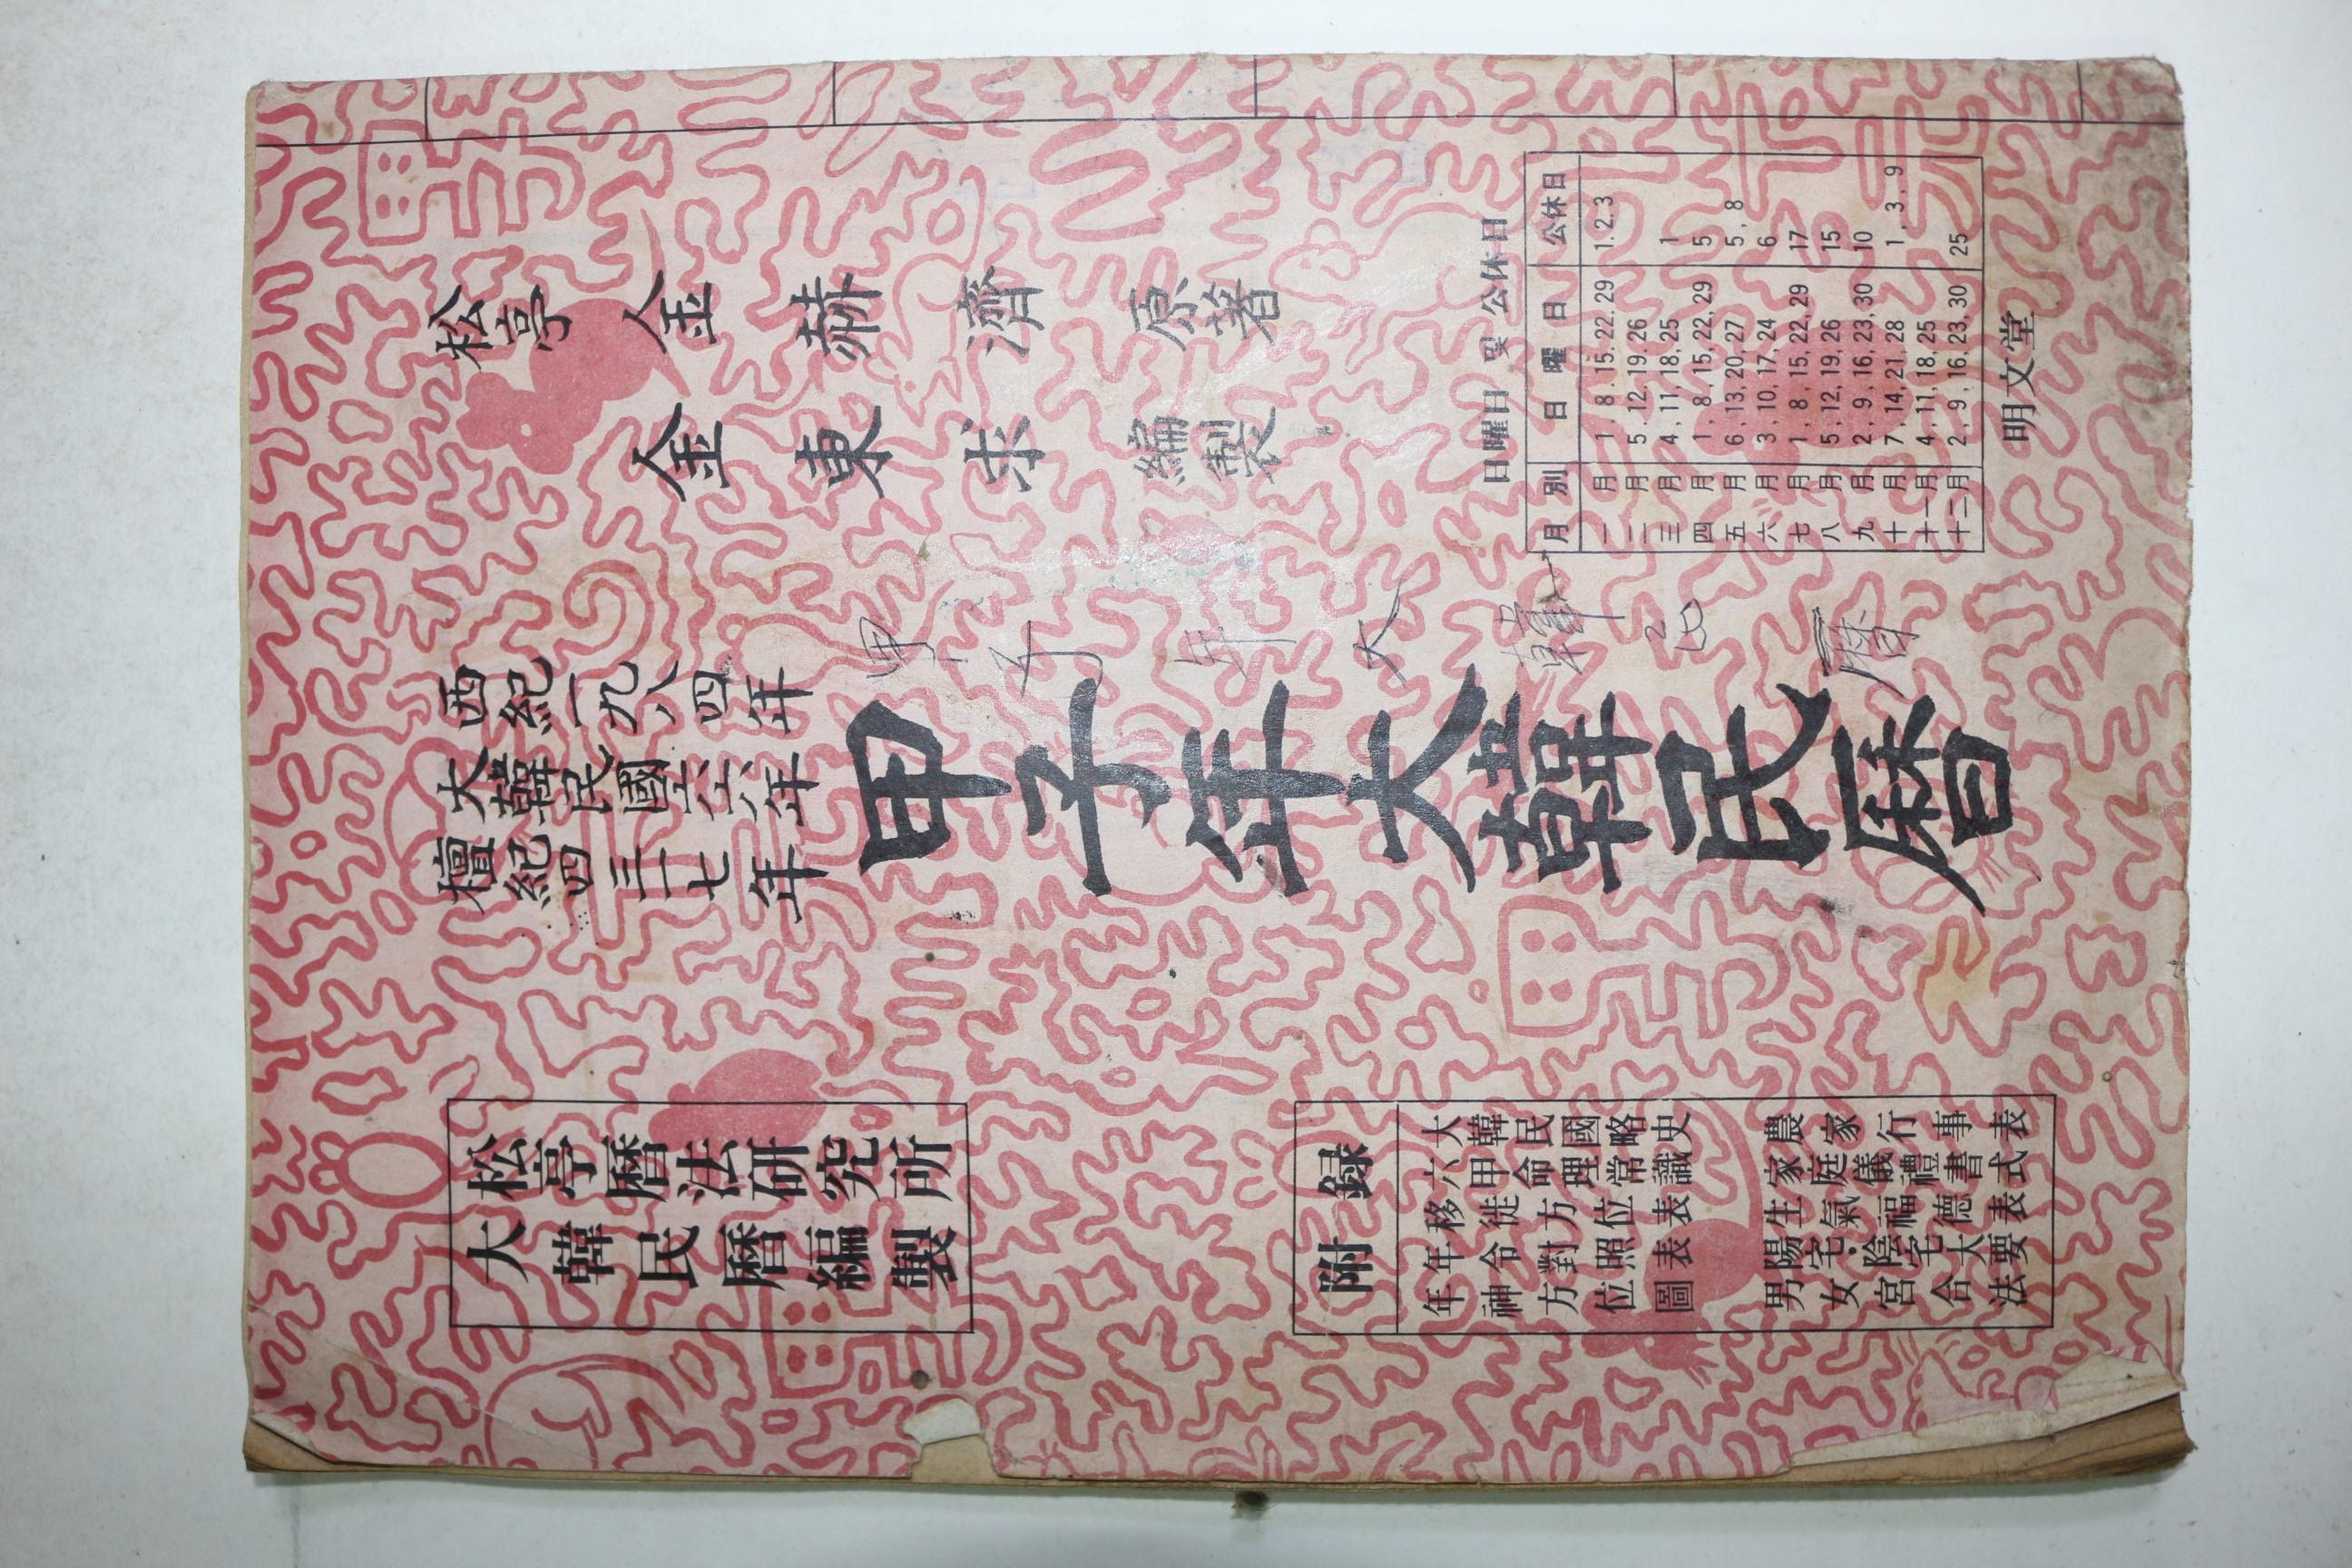 松亭 金赫濟 原著
金東求 編製
日曜日 및 公休日
月別 日曜日 公休日
一月 1, 8, 15, 22, 29 1. 2. 3
二月 5, 12, 19, 26
三月 4, 11, 18, 25 1
四月 1, 8, 15, 22, 29 5
五月 6, 13, 20, 27 5, 8
六月 3, 10, 17, 24 6
七月 1, 8, 15, 22, 29 17
八月 5, 12, 19, 26 15
九月 2, 9, 16, 23, 30 10
十月 7, 14, 21, 28 1, 3, 9
十一月 4, 11, 18, 25
十二月 2, 9, 16, 23, 30 25
明文堂
甲子年大韓民曆
西紀一九八四年
大韓民國六六年
檀紀四三一七年
甲子年大韓民曆
松亭曆法硏究所
大韓民曆編製
附錄
大韓民國略史
六甲命理常識
移徙方位表
年令對照表
年神方位圖
農家行事表
家庭儀禮書式
生氣福德表
陽宅·陰宅大要
男女宮合法